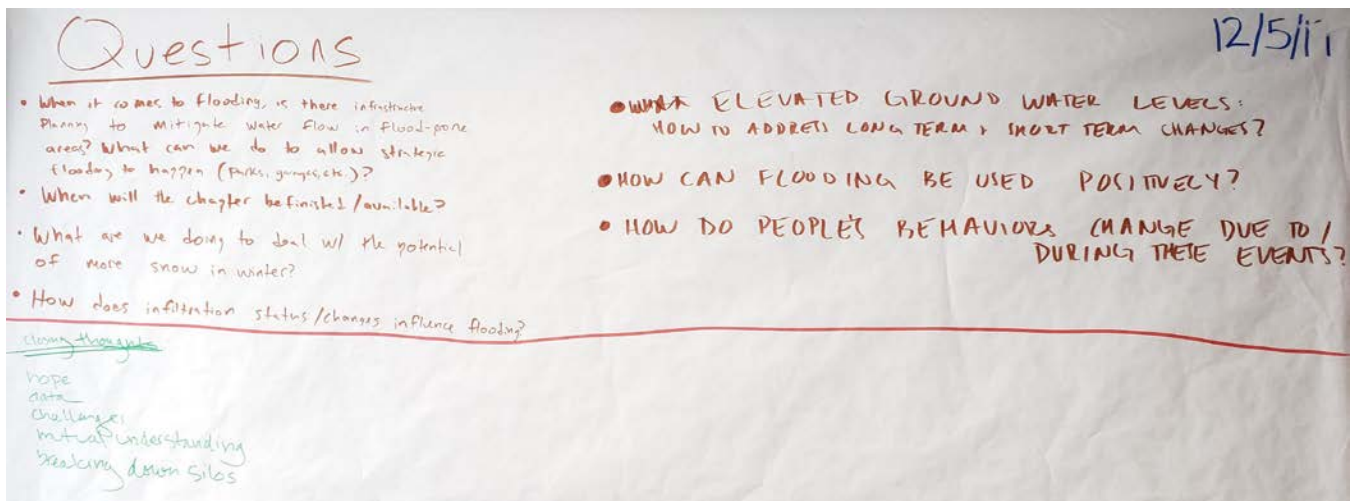 Questions
12/5/11
• When it comes to flooding, is there infrastructure
Planning to mitigate water flow in flood-pone
areas? What can we do to allow strategic
flooding to happen (parks, garages, etc.)?
• When will the chapter be finished/available?
• What are we doing to deal w/ the potential
of more snow in winter?
• How does infiltration status/changes influence flooding?
• ELEVATED GROUND WATER LEVELS:
HOW TO ADDRESS LONG TERM + SHORT TERM CHANGES?
• HOW CAN FLOODING BE USED POSITIVELY?
• HOW DO PEOPLE'S BEHAVIORS CHANGE DUE TO /
DURING THESE EVENTS?
closing thoughts
hope
data
challenges
mutual understanding
breaking down silos